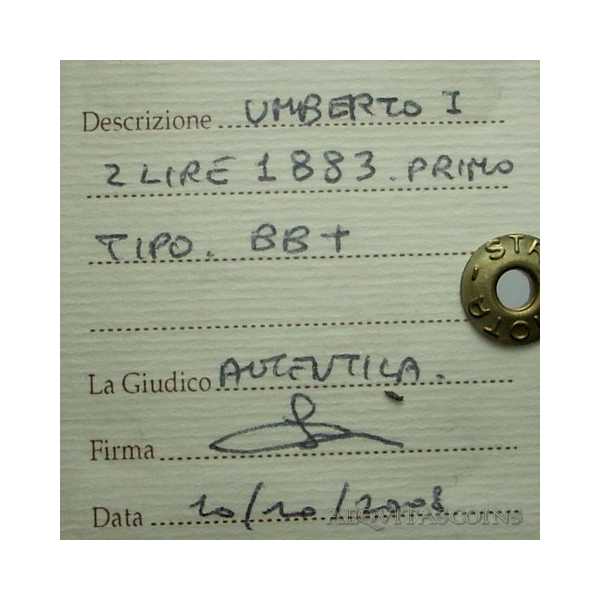 Descrizione UMBERTO I
2 LIRE 1883. PRIMO
TIPO. BB+
La Giudico AUTENTICA.
Firma
Data 10/10/2008
AEQVITASCOINS